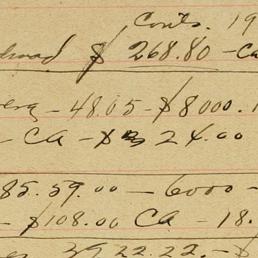 Conts. 19
$ 268.80 - Ca
- 48.05 - $8000.
- CA - $ 24.00
85.59.00 - 6000 -
- $108.00 CA - 18.
3922.22. - $